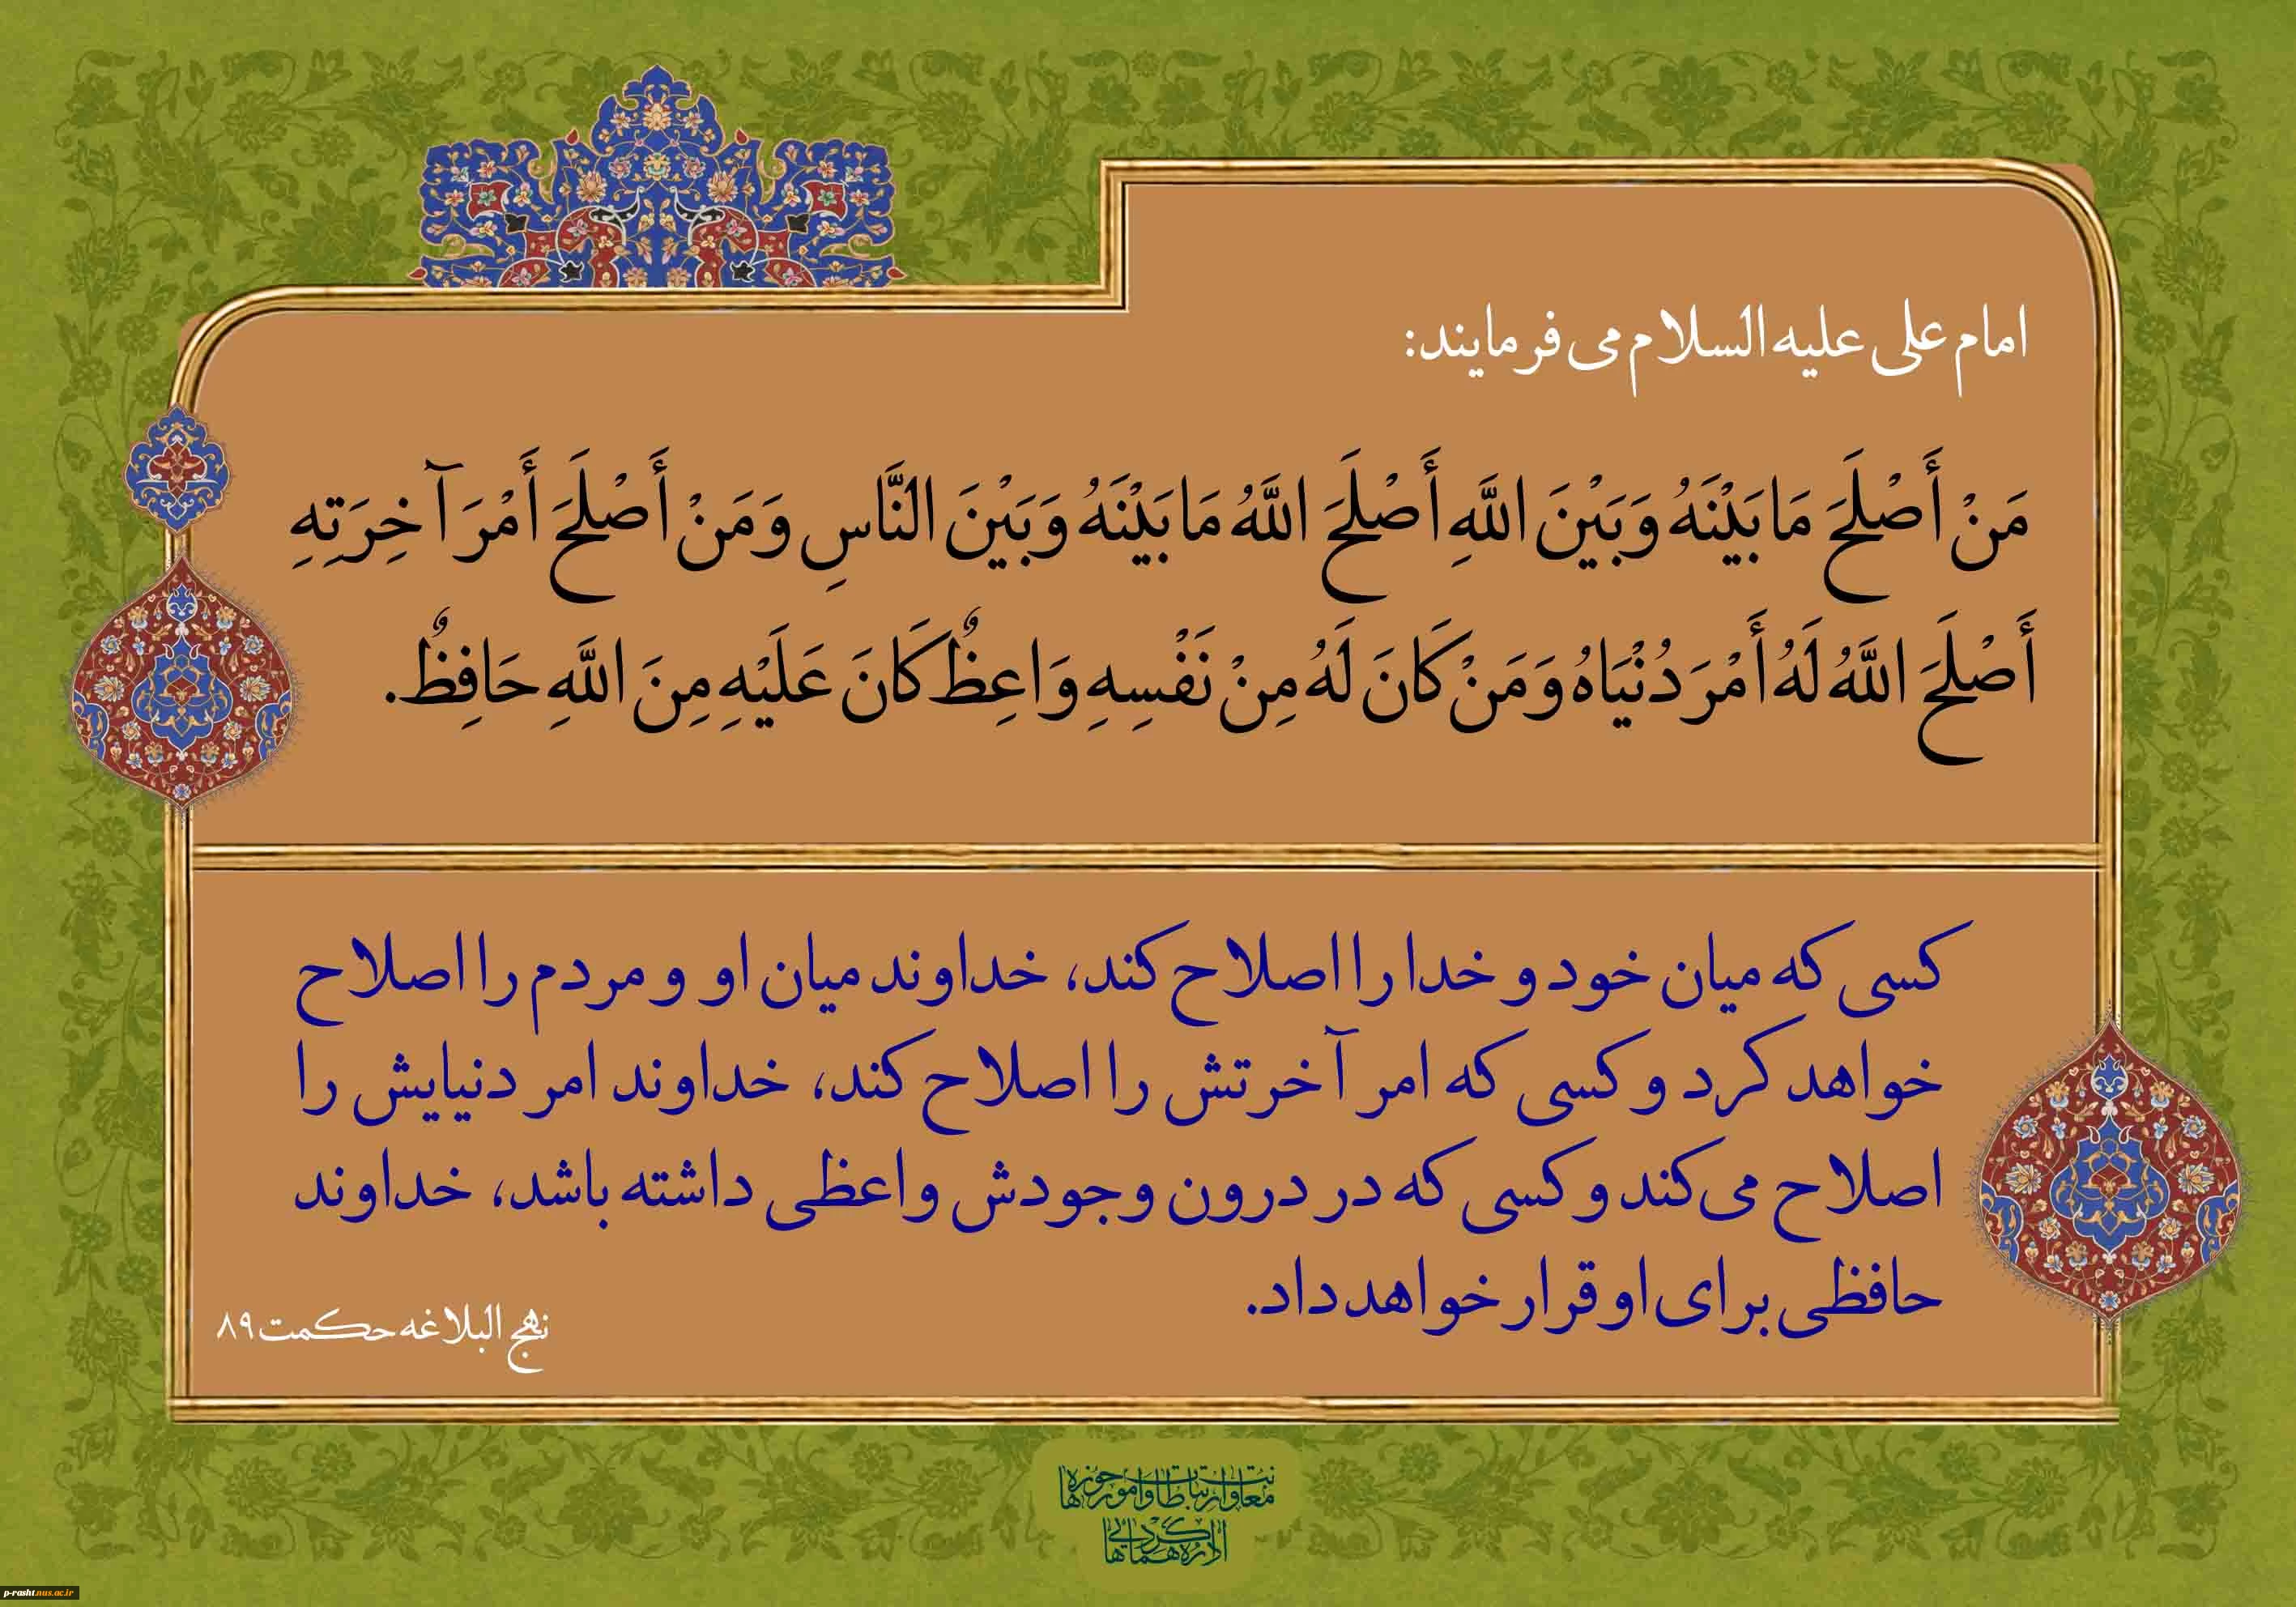 امام علی علیه السلام می فرمایند:
مَنْ أَصْلَحَ مَا بَيْنَهُ وَبَيْنَ اللَّهِ أَصْلَحَ اللَّهُ مَا بَيْنَهُ وَبَيْنَ النَّاسِ وَمَنْ أَصْلَحَ أَمْرَ آخِرَتِهِ
أَصْلَحَ اللَّهُ لَهُ أَمْرَ دُنْيَاهُ وَمَنْ كَانَ لَهُ مِنْ نَفْسِهِ وَاعِظٌ كَانَ عَلَيْهِ مِنَ اللَّهِ حَافِظٌ.
کسی که میان خود و خدا را اصلاح کند، خداوند میان او و مردم را اصلاح
خواهد کرد و کسی که امر آخرتش را اصلاح کند، خداوند امر دنیایش را
اصلاح می‌کند و کسی که در درون وجودش واعظی داشته باشد، خداوند
حافظی برای او قرار خواهد داد.
نهج البلاغه حکمت ۸۹
معاونت ارتباطات و امور حوزه ها
اداره گردهمایی ها
p-rasht.nus.ac.ir